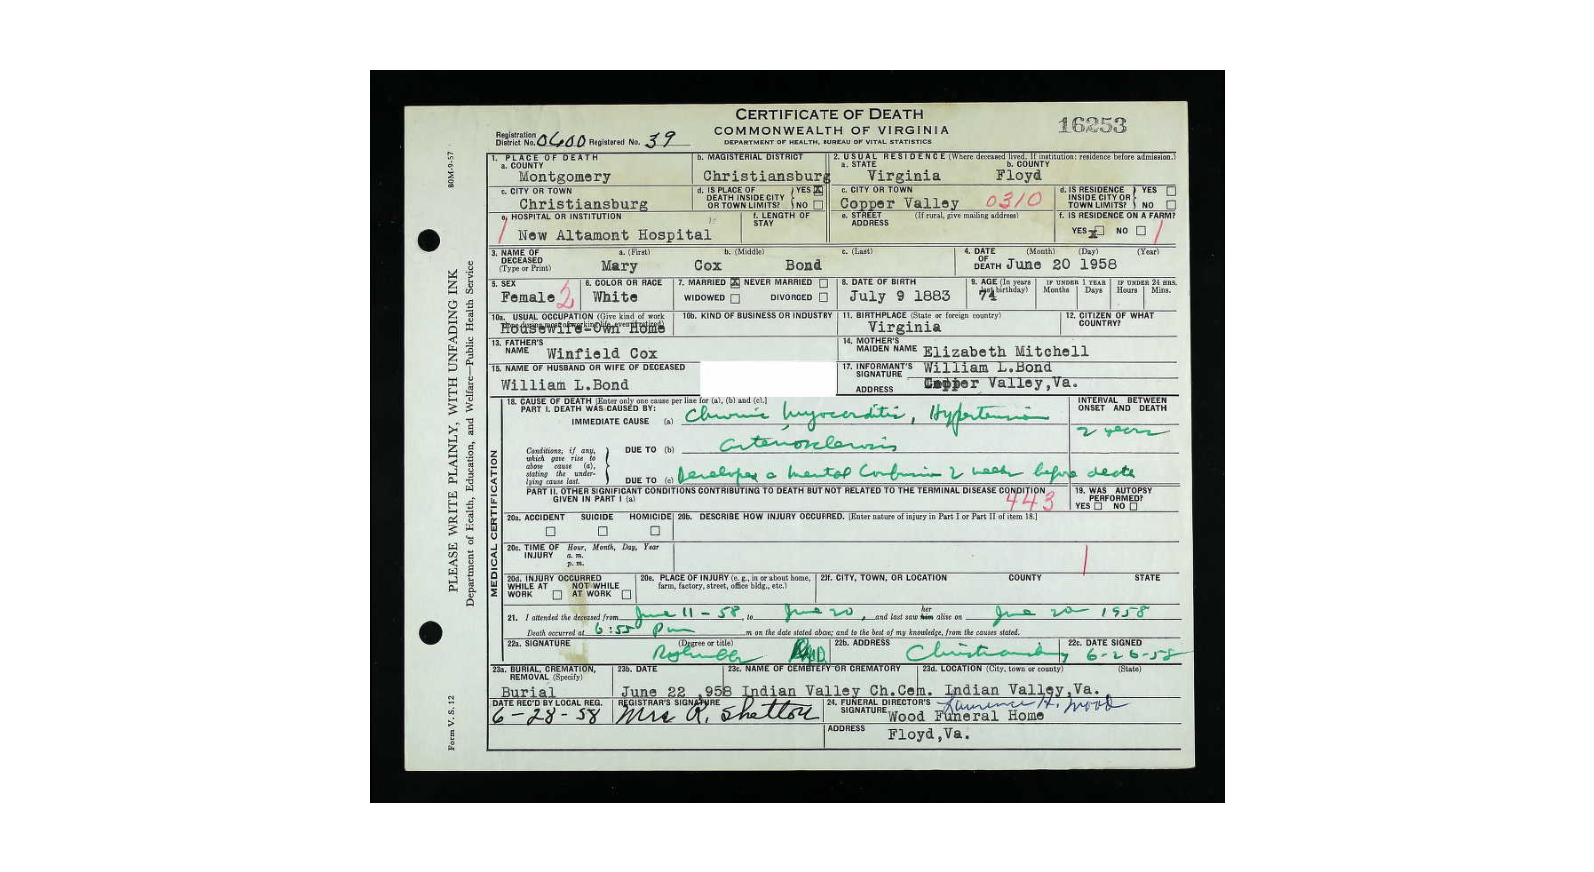 CERTIFICATE OF DEATH
COMMONWEALTH OF VIRGINIA
DEPARTMENT OF HEALTH, BUREAU OF VITAL STATISTICS
16253
Registration District No. 0600 Registered No. 39
80M-9-57
PLEASE WRITE PLAINLY, WITH UNFADING INK
Department of Health, Education, and Welfare—Public Health Service
Form V. S. 12
1. PLACE OF DEATH
a. COUNTY
Montgomery
b. MAGISTERIAL DISTRICT
Christiansburg
2. USUAL RESIDENCE (Where deceased lived. If institution: residence before admission.)
a. STATE
Virginia
b. COUNTY
Floyd
c. CITY OR TOWN
Christiansburg
d. IS PLACE OF DEATH INSIDE CITY OR TOWN LIMITS? YES X NO
c. CITY OR TOWN
Copper Valley 0310
d. IS RESIDENCE INSIDE CITY OR TOWN LIMITS? YES NO
e. HOSPITAL OR INSTITUTION
1 New Altamont Hospital
f. LENGTH OF STAY
e. STREET ADDRESS (If rural, give mailing address)
f. IS RESIDENCE ON A FARM?
YES X NO 1
3. NAME OF DECEASED (Type or Print)
a. (First) b. (Middle) c. (Last)
Mary Cox Bond
4. DATE OF DEATH (Month) (Day) (Year)
June 20 1958
5. SEX
Female 2
6. COLOR OR RACE
White
7. MARRIED X NEVER MARRIED
WIDOWED DIVORCED
8. DATE OF BIRTH
July 9 1883
9. AGE (In years last birthday)
74
IF UNDER 1 YEAR Months Days
IF UNDER 24 HRS. Hours Mins.
10a. USUAL OCCUPATION (Give kind of work done during most of working life, even if retired)
Housewife-Own Home
10b. KIND OF BUSINESS OR INDUSTRY
11. BIRTHPLACE (State or foreign country)
Virginia
12. CITIZEN OF WHAT COUNTRY?
13. FATHER'S NAME Winfield Cox
14. MOTHER'S MAIDEN NAME Elizabeth Mitchell
15. NAME OF HUSBAND OR WIFE OF DECEASED
William L.Bond
17. INFORMANT'S SIGNATURE William L.Bond
ADDRESS Copper Valley,Va.
MEDICAL CERTIFICATION
18. CAUSE OF DEATH [Enter only one cause per line for (a), (b) and (c).]
PART I. DEATH WAS CAUSED BY:
IMMEDIATE CAUSE (a) Chronic Myocarditis, Hypertension
INTERVAL BETWEEN ONSET AND DEATH
2 years
Conditions, if any, which gave rise to above cause (a), stating the underlying cause last.
DUE TO (b) arteriosclerosis
DUE TO (c) Developed a mental Confusion 2 weeks before death
PART II. OTHER SIGNIFICANT CONDITIONS CONTRIBUTING TO DEATH BUT NOT RELATED TO THE TERMINAL DISEASE CONDITION GIVEN IN PART I (a)
443
19. WAS AUTOPSY PERFORMED?
YES NO
20a. ACCIDENT SUICIDE HOMICIDE
20b. DESCRIBE HOW INJURY OCCURRED. [Enter nature of injury in Part I or Part II of item 18.]
20c. TIME OF INJURY Hour, Month, Day, Year
a. m.
p. m.
20d. INJURY OCCURRED
WHILE AT WORK NOT WHILE AT WORK
20e. PLACE OF INJURY (e. g., in or about home, farm, factory, street, office bldg., etc.)
2Ff. CITY, TOWN, OR LOCATION COUNTY STATE
21. I attended the deceased from June 11-58, to June 20, and last saw him her alive on June 20 1958
Death occurred at 6:55 Pm m on the date stated above; and to the best of my knowledge, from the causes stated.
22a. SIGNATURE (Degree or title)
MD
22b. ADDRESS
Christiansburg
22c. DATE SIGNED
6-26-58
23a. BURIAL, CREMATION, REMOVAL (Specify)
Burial
23b. DATE
June 22 ,958
23c. NAME OF CEMETERY OR CREMATORY
Indian Valley Ch.Cem.
23d. LOCATION (City, town or county) (State)
Indian Valley,Va.
DATE REC'D BY LOCAL REG.
6-28-58
REGISTRAR'S SIGNATURE
Mrs R. Shelton
24. FUNERAL DIRECTOR'S SIGNATURE Lawrence H. Wood
Wood Funeral Home
ADDRESS Floyd,Va.